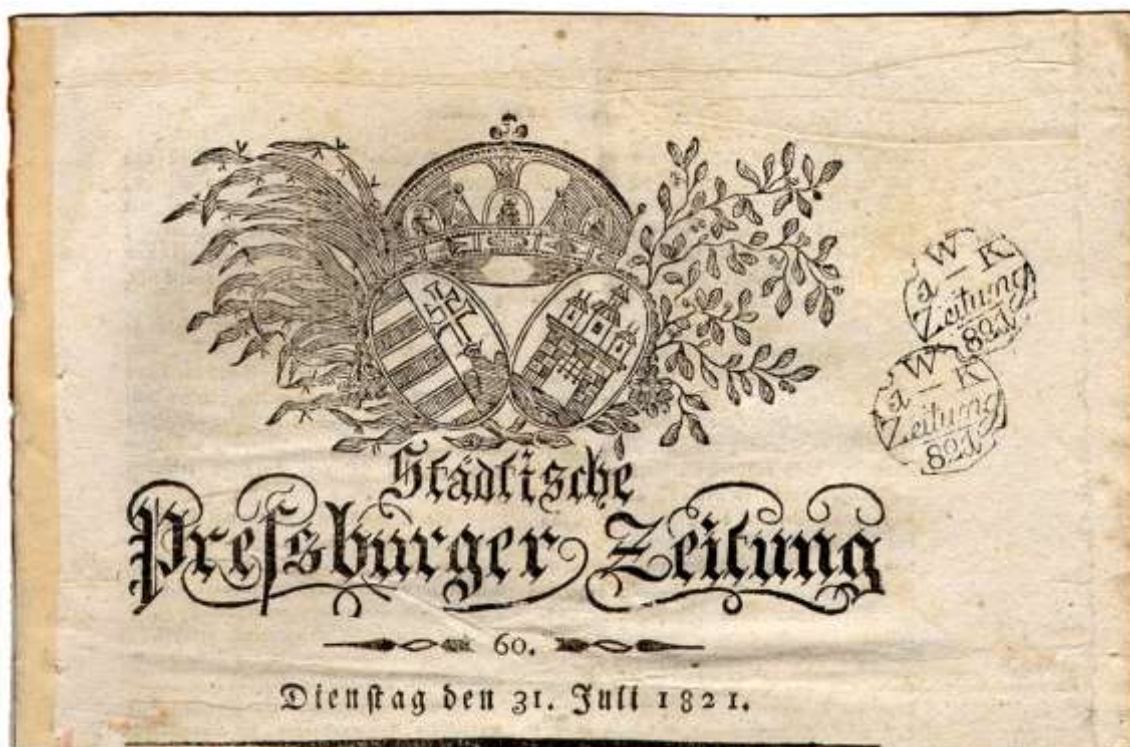 W
a – K
Zeitung
821
W
a – K
Zeitung
821
Städtische
Preſsburger Zeitung
60.
Dienſtag den 31. Juli 1821.